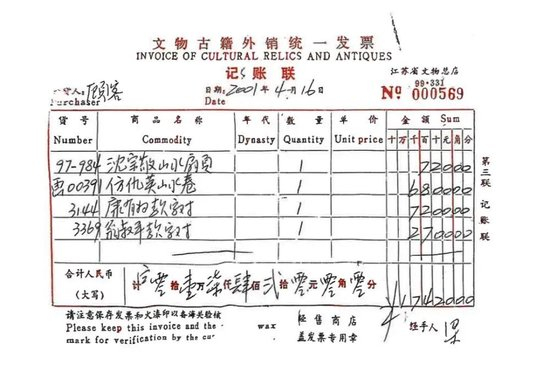 文物古籍外销统一发票
INVOICE OF CULTURAL RELICS AND ANTIQUES
记账联
江苏省文物总店
货人：顾客
Purchaser
日期：2001年4月16日
Date
99·331
№ 000569
货号 商品名称 年代 数量 单价 金额 Sum
Number Commodity Dynasty Quantity Unit price 十万千百十元角分
97-984 沈宗敬山水扇页 1 72000
00391 仿仇英山水卷 1 680000
3144 康有为款字对 1 720000
3369 翁叔平款字对 1 270000
合计人民币
(大写)
计 零拾壹万柒仟肆佰贰拾零元零角零分 ¥1742000
请注意保存发票和火漆印以备海关验核
Please keep this invoice and the wax
mark for verification by the cus
经售商店
盖发票专用章
经手人 梁
第三联 记账联